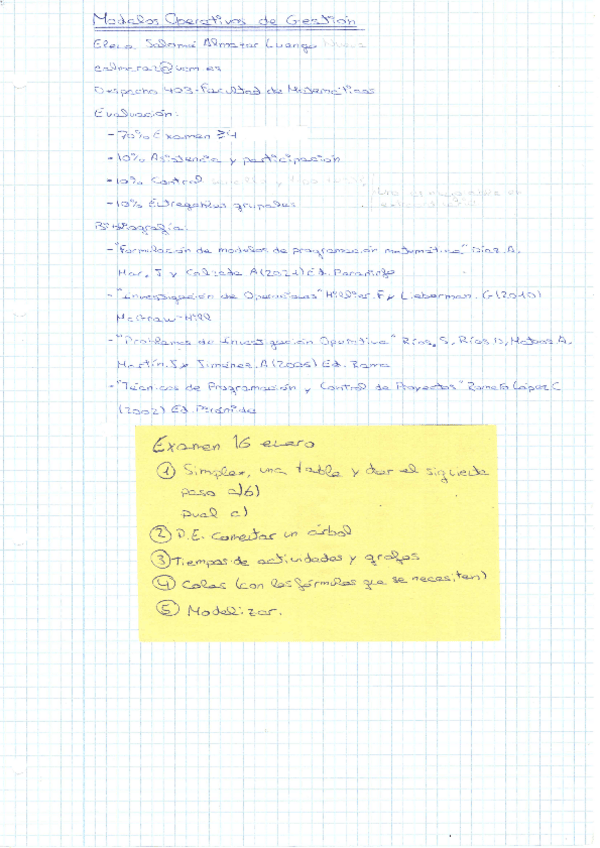 Modelos Operativos de Gestión
Elena Salomé Almaraz Luengo
ealmaraz@ucm.es
Despacho 403. Facultad de Matemáticas
Evaluación:
-70% Examen ≥4
-10% Asistencia y participación
-10% Control
-10% Entregables grupales
Bibliografía:
-"Formulación de modelos de programación matemática." Díaz. A,
Mar, J y Calzada A (2021) Ed. Paraninfo
-"Investigación de Operaciones" Hillier. F y Lieberman. G (2010)
McGraw-Hill
-"Problemas de Investigación Operativa" Ríos, S, Ríos D, Mateos A,
Martín. J y Jiménez. A (2006) Ed. Rama
-"Técnicas de Programación y Control de Proyectos" Romero López C
(2002) Ed. Pirámide
Examen 16 enero
① Simplex, una tabla y dar el siguiente
paso a)b)
Dual c)
② P.E. comentar un árbol
③ Tiempos de actividades y grafos
④ Colas (con las fórmulas que se necesiten)
⑤ Modelizar.